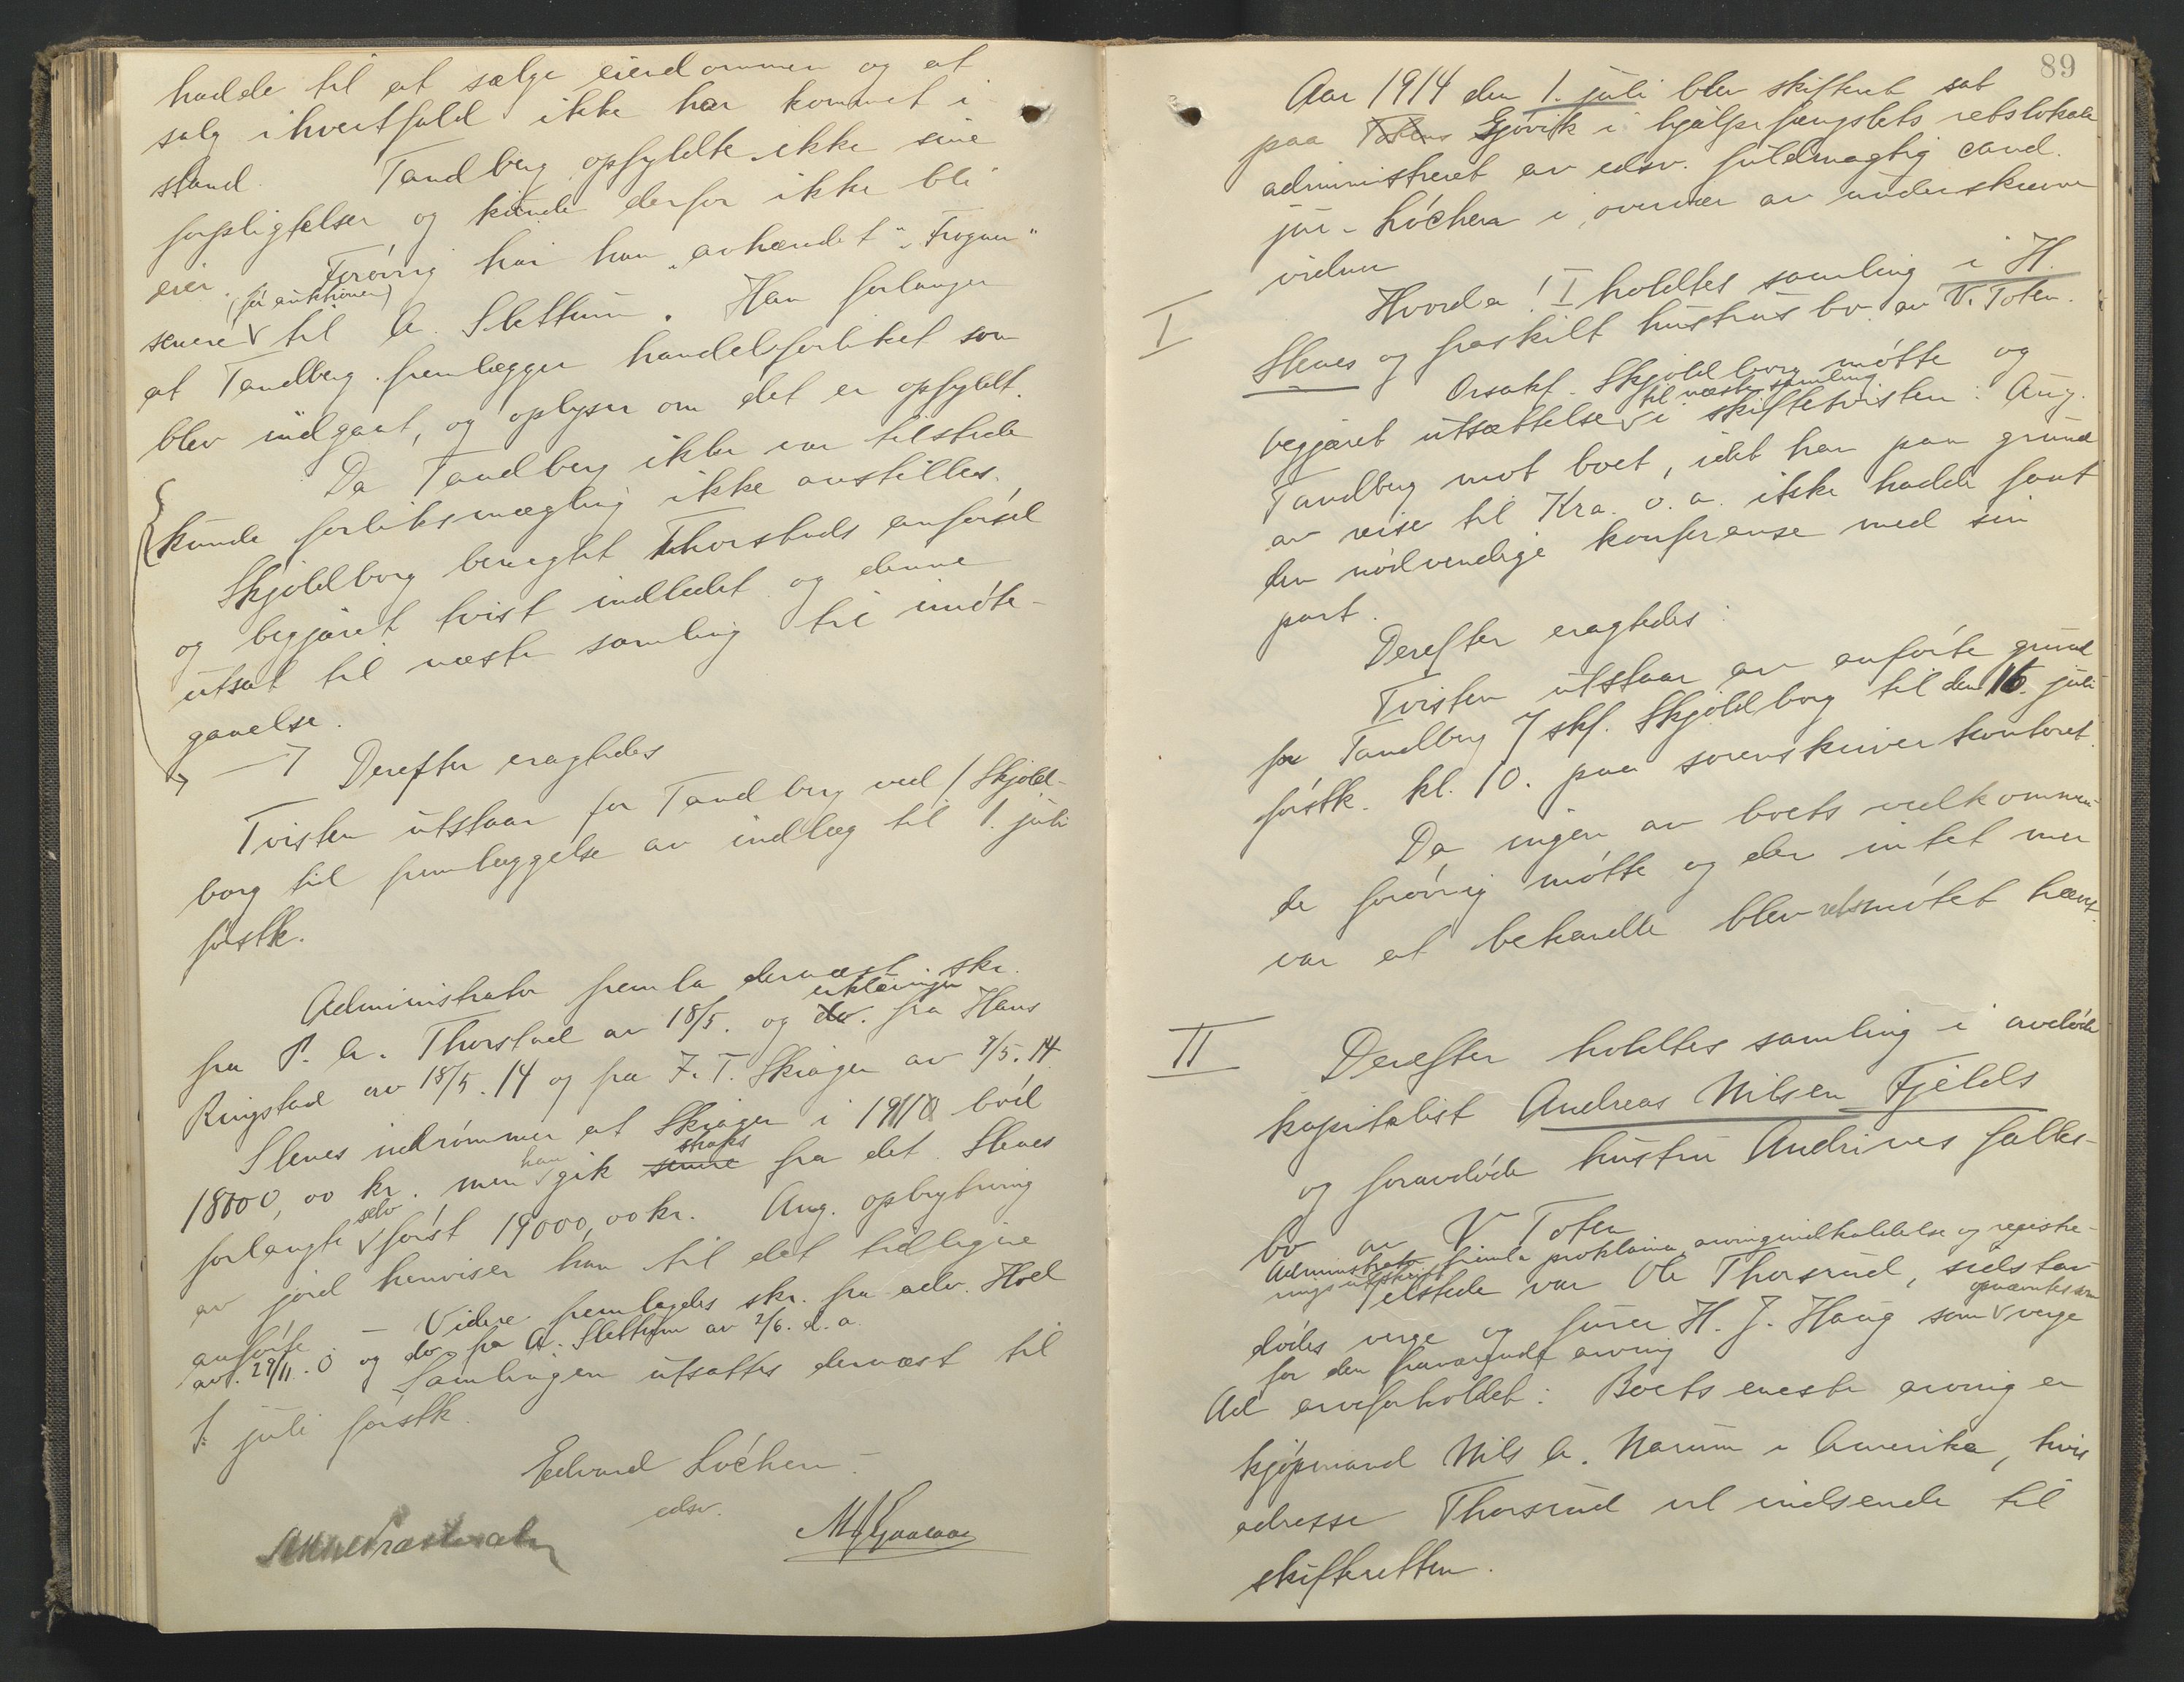 hadde til at sælge eiendommen og at
salg ihvertfald ikke har kommet i
stand. Tandberg opfyldte ikke sine
forpligtelser og kunde derfor ikke bli
eier. Forøvrig har han "avhændet" "Frogner"
(før auktionen)
senere til A. Slettum. Han forlanger
at Tandberg fremlægger handelsforliket som
blev indgaat, og oplyser om det er opfyldt.
Da Tandberg ikke var tilstede
kunde forliksmægling ikke anstilles.
Skjoldborg benegtet Thorstads anførsel
og begjæret tvist indledet og denne
utsat til næste samling til imøte-
gaaelse.
Derefter eragtedes
Tvisten utstaar for Tandberg ved Skjold-
borg til fremlæggelse av indlæg til 1. juli
førstk.
Administrator fremla dernæst skr.
erklæringer
fra P. A. Thorstad av 18/5. og do. fra Hans
Ringstad av 18/5. 14 og fra F. T. Skiager av 9/5. 14
Stenes indrømmer at Skiager i 1910 bød
han straks
18000,00 kr. men gik senere fra det. Stenes
selv
forlangte først 19000,00 kr. Ang. opbrytning
av jord henviser han til det tidligere
anførte. – Videre fremlagdes skr. fra adv. Hoel
av 29/11. 0 og do. fra A. Slettum av 2/6. d.a.
Samlingen utsattes dernæst til
1. juli førstk.
Edvard Løchen
edsv.
89
Aar 1914 den 1. juli blev skifteret sat
paa Totens Gjøvik i hjælpefængslets retslokale
administreret av edsv. fuldmægtig cand.
jur. Løchen i overvær av underskrevne
vidner
Hvorda! I holdtes samling i H.
I
Stenes og fraskilt hustrus bo av V. Toten.
Orsakf. Skjoldborg møtte og
til næste samling
begjæret utsættelse i skiftetvisten: Aug.
Tandberg mot boet, idet han paa grund
av reise til Kra. o. a. ikke hadde faat
den nødvendige konferanse med sin
part.
Derefter eragtedes:
Tvisten utstaar av anførte grund
for Tandberg v/ skf. Skjoldborg til den 16. juli
førstk. kl. 10. paa sorenskriverkontoret.
Da ingen av boets vedkommen-
de forøvrig møtte og der intet mer
var at behandle blev retsmøtet hævet.
II
Derefter holdtes samling i avdøde
kapitalist Andreas Nilsen Fjelds
og foravdøde hustru Andrines fælles-
bo av V Toten
Administrator fremla proklama, arvingindkaldelse og registre-
ringsutskrift
Tilstede var Ole Thorsrud, sidstav
opnævntes som
dødes verge og furer H. J. Haug som verge
for den fraværende arving
Ad arveforholdet: Boets eneste arving er
kjøpmand Nils A. Narum i Amerika, hvis
adresse Thorsrud vil indsende til
skifteretten.